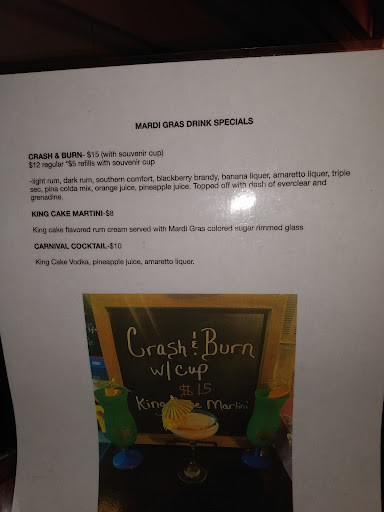 MARDI GRAS DRINK SPECIALS
CRASH & BURN- $15 (with souvenir cup)
$12 regular *$5 refills with souvenir cup
-light rum, dark rum, southern comfort, blackberry brandy, banana liquer, amaretto liquer, triple
sec, pina colda mix, orange juice, pineapple juice. Topped off with dash of everclear and
grenadine.
KING CAKE MARTINI-$8
King cake flavored rum cream served with Mardi Gras colored sugar rimmed glass
CARNIVAL COCKTAIL-$10
King Cake Vodka, pineapple juice, amaretto liquer.
Crash & Burn
w/ cup
$15
King Martini